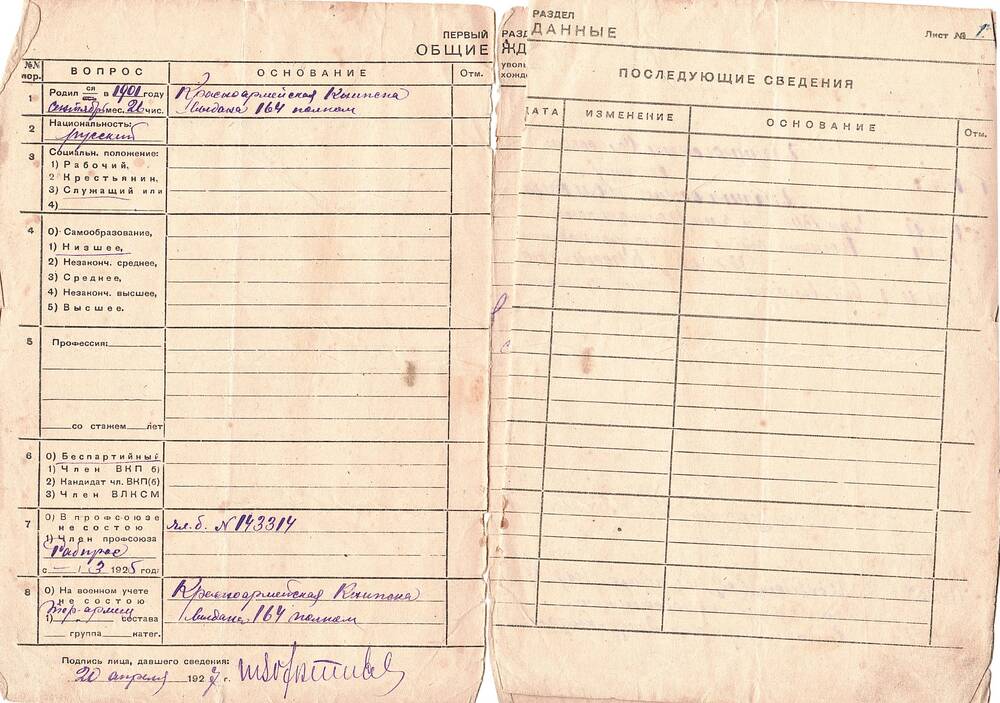 ПЕРВЫЙ РАЗДЕЛ
ОБЩИЕ ДАННЫЕ
Лист № 1
№№ пор. ВОПРОС ОСНОВАНИЕ Отм.
1 Родил ся в 1901 году Красноармейская Книжка
Сентябрь мес. 26 чис. выдана 164 полком
2 Национальность:
русский
3 Социальн. положение:
1) Рабочий,
2 Крестьянин,
3) Служащий или
4)
4 0) Самообразование,
1) Низшее,
2) Незаконч. среднее,
3) Среднее,
4) Незаконч. высшее,
5) Высшее.
5 Профессия:
со стажем лет
6 0) Беспартийный
1) Член ВКП б)
2) Кандидат чл. ВКП(б)
3) Член ВЛКСМ
7 0) В профсоюзе чл. б. № 143314
не состою
1) Член профсоюза
Рабпрос
с — / 3 1925 год:
8 0) На военном учете Красноармейская Книжка
не состою выдана 164 полком
Тер-армеец
1) " состава
группа катег.
Подпись лица, давшего сведения:
20 апреля 1927 г.
увол
хожд
ПОСЛЕДУЮЩИЕ СВЕДЕНИЯ
ДАТА ИЗМЕНЕНИЕ ОСНОВАНИЕ Отм.